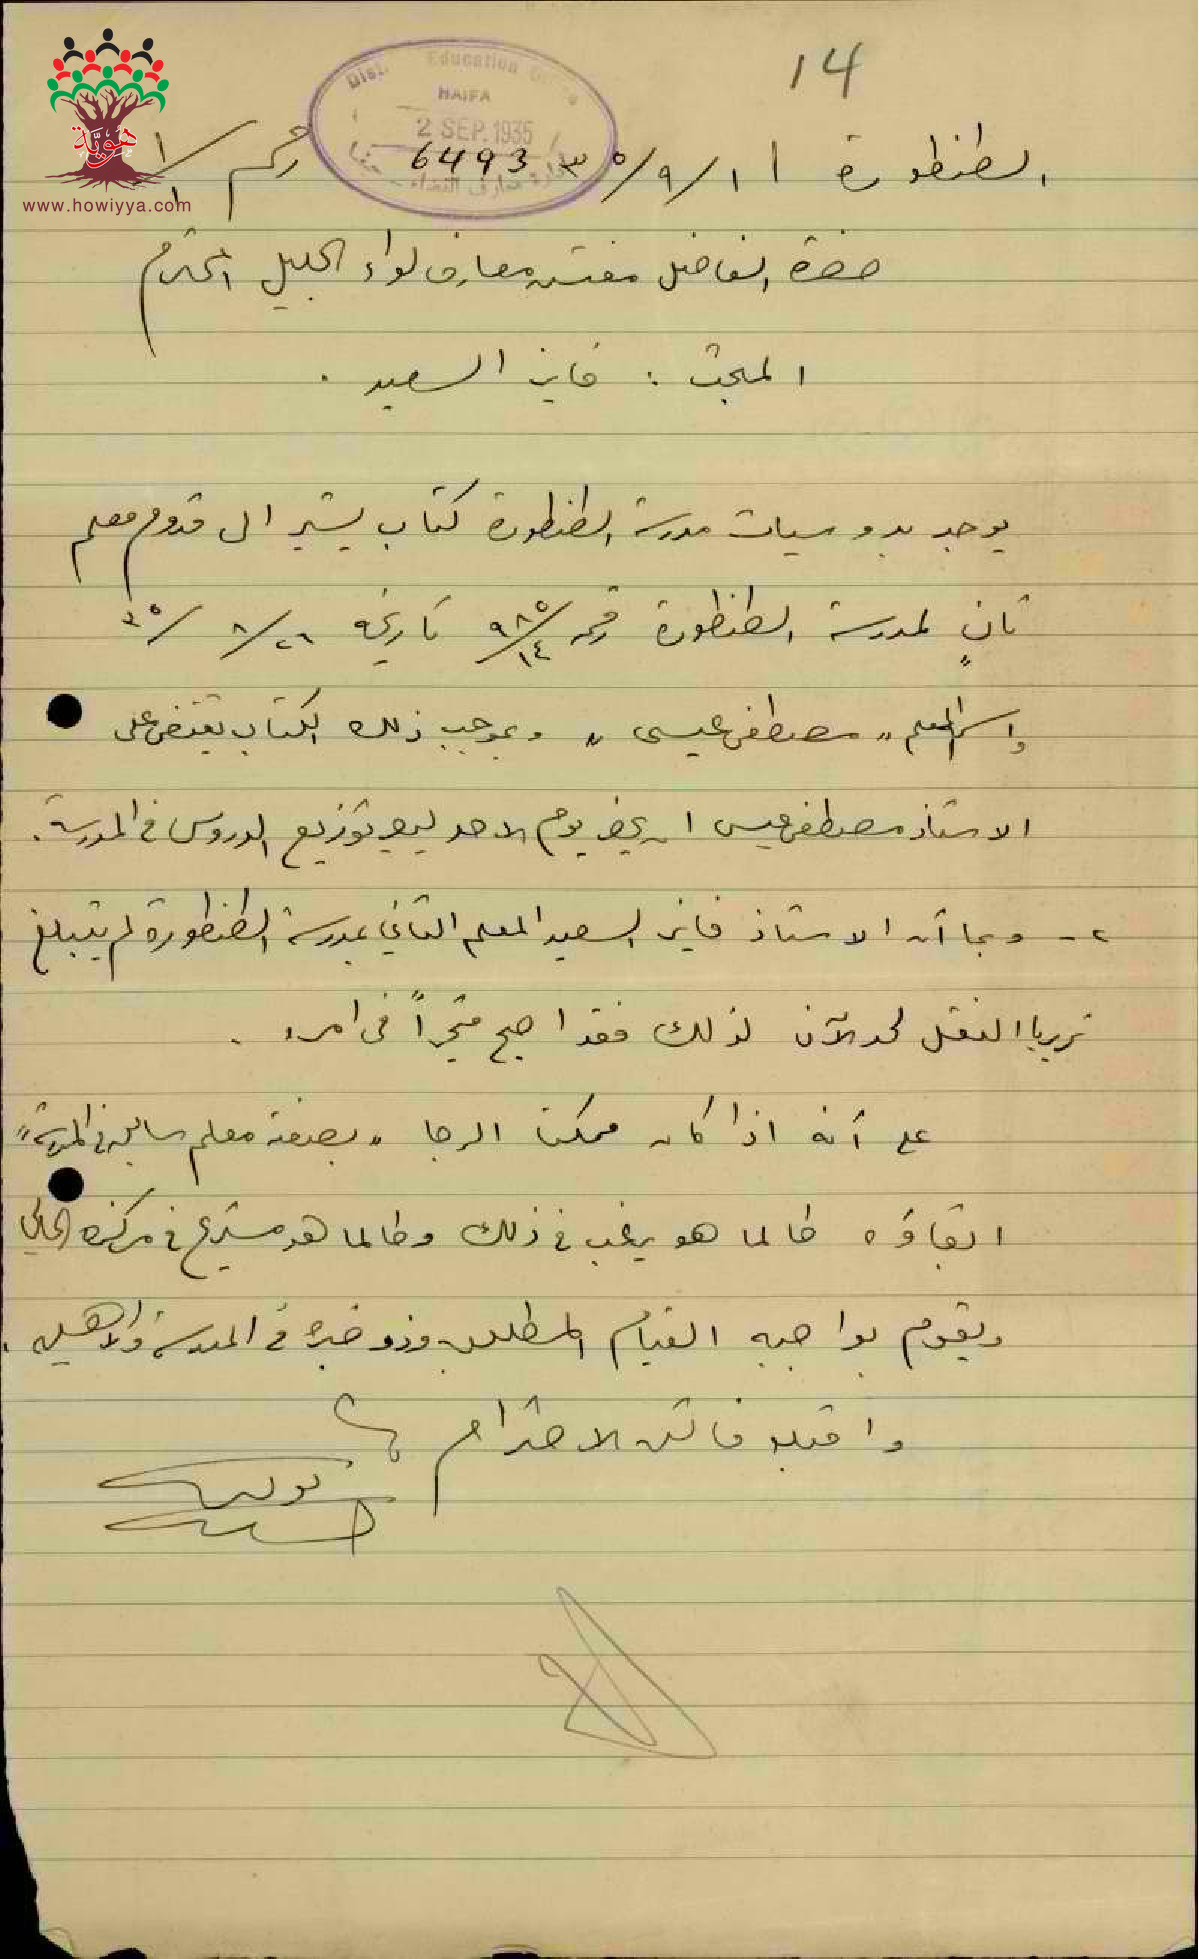 14
Dist. Education Office
HAIFA
2 SEP. 1935
6493
هويّة
www.howiyya.com
الطنطورة ١/٩/٣٥ رقم ١/١
حضرة الفاضل مفتش معارف لواء الجليل المحترم
المبحث : فايز السعيد .
يوجد بدوسيات مدرسة الطنطورة كتاب يشير الى قدوم معلم
ثانٍ لمدرسة الطنطورة رقمه ٩٨٥/١٤ تاريخه ٢٦/٨/٣٥
واسم المعلم " مصطفى عيسى " وبموجب ذلك الكتاب يقتضي على
الاستاذ مصطفى عيسى ان يحضر يوم الاحد ليعيد توزيع الدروس في المدرسة .
٢ - وبما أن الاستاذ فايز السعيد المعلم الثاني بمدرسة الطنطورة لم يتبلغ
النقل لحد الآن لذلك فقد اصبح متحيراً في امره .
على أنه اذا كان ممكنا الرجا " بصفته معلم سابق في المدرسة "
ابقاؤه طالما هو يرغب في ذلك وطالما هو مستريح في مركزه الحالي
ويقوم بواجبه القيام المطلوب وذو خبرة في المدرسة والاهلين .
واقبلوا فائق الاحترام